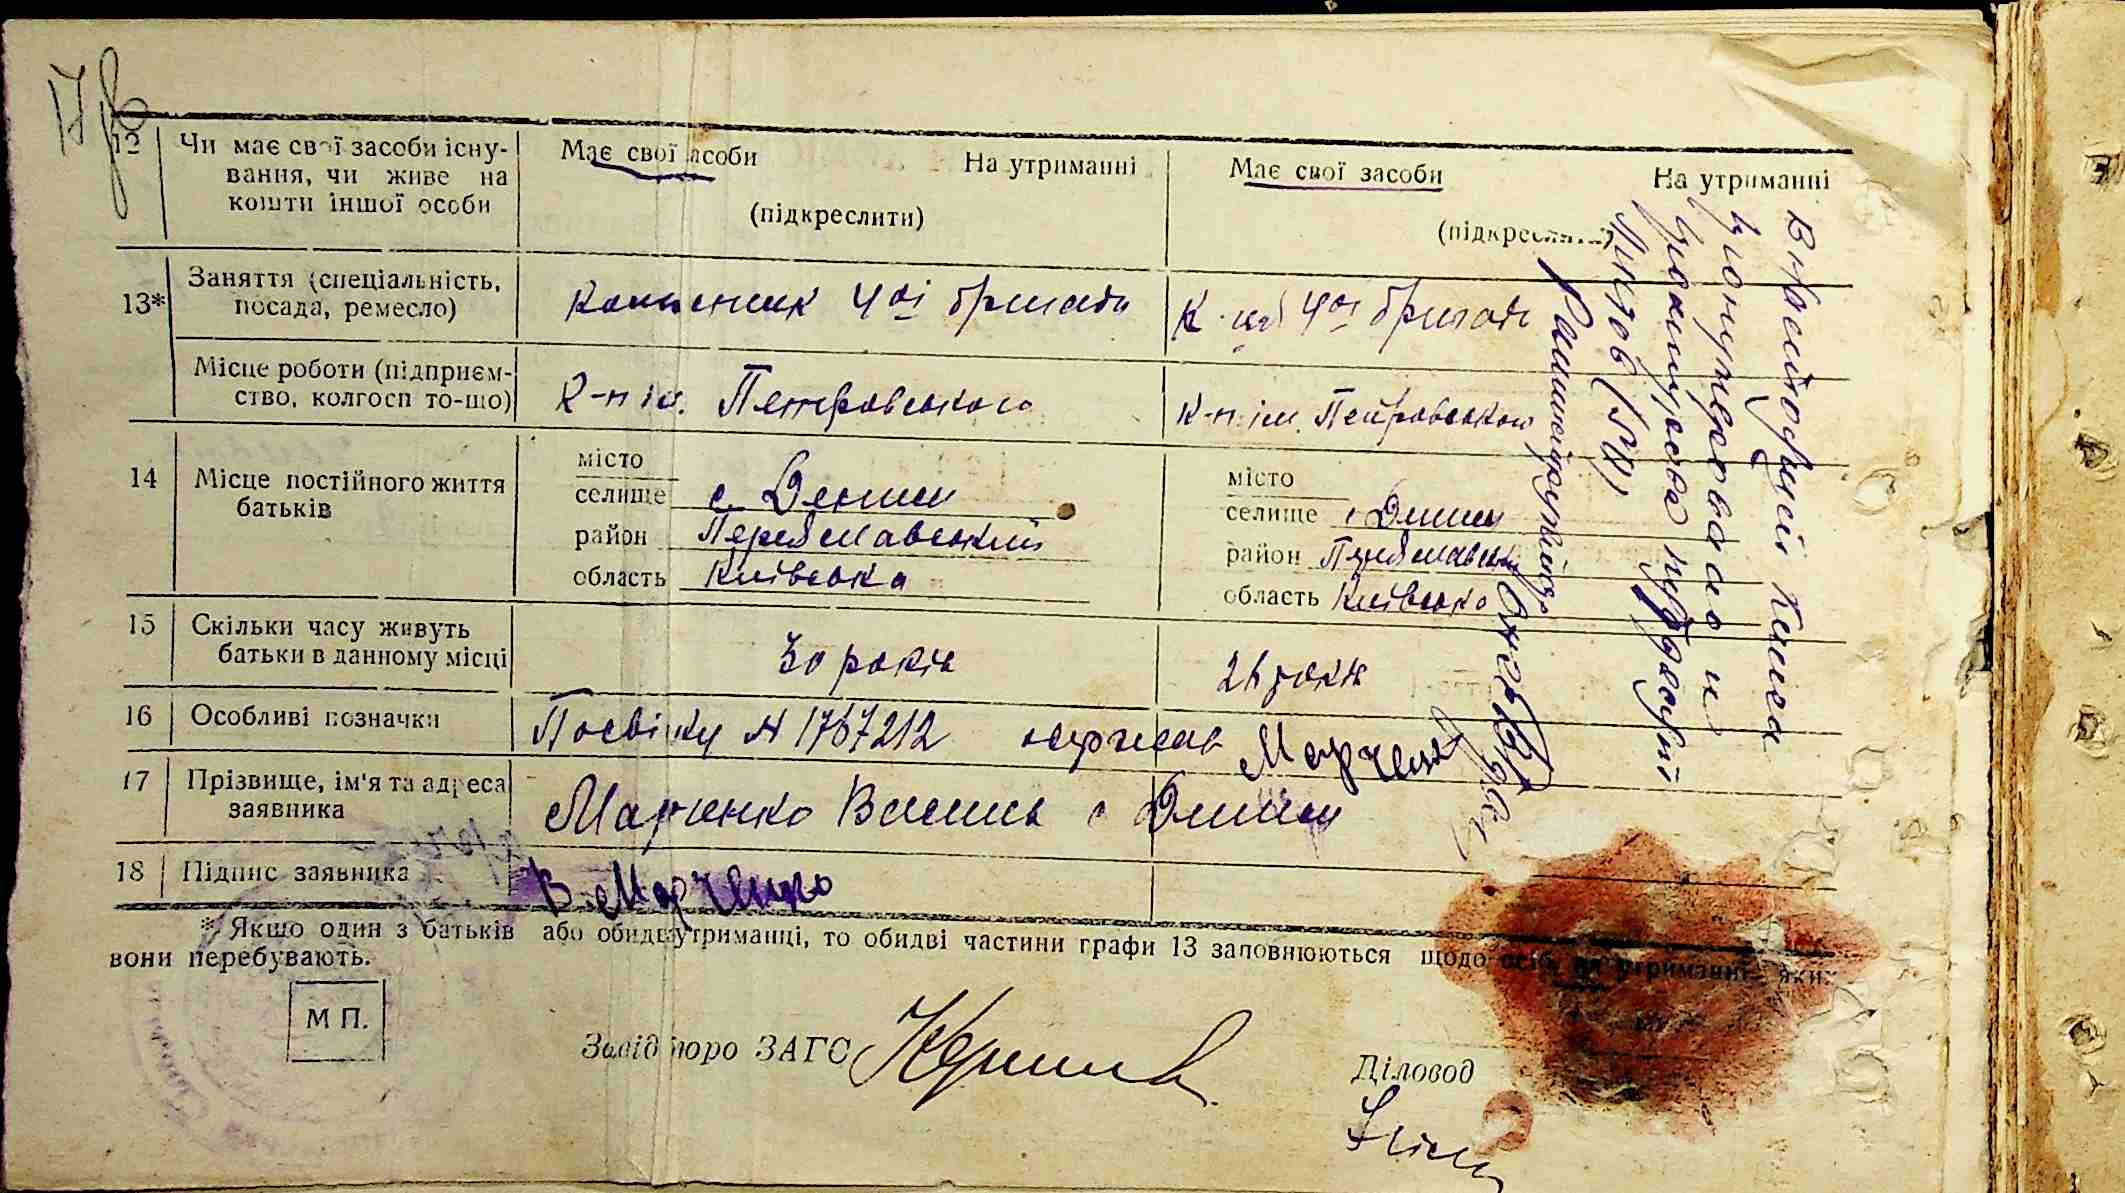 12 Чи має свої засоби існу- Має свої засоби На утриманні Має свої засоби На утриманні
вання, чи живе на
кошти іншої особи (підкреслити) (підкреслити)
13* Заняття (спеціальність,
посада, ремесло) 4ої бригади 4ої бригади
Місце роботи (підприєм-
ство, колгосп то-що) К-п ім. Петровського К-п. ім. Петровського
14 Місце постійного життя
батьків
місто місто
селище с. Дениси селище с Дениси
район Переяславський район Переяславськ
область Київська область Київська
15 Скільки часу живуть
батьки в данному місці 30 років 26 років
16 Особливі позначки Посвідку № 1767212 одержав Марченко
17 Прізвище, ім'я та адреса
заявника Марченко Василь с Дениси
18 Підпис заявника В. Марченко
* Якщо один з батьків або обидва утриманці, то обидві частини графи 13 заповнюються щодо осіб, на утриманні яких
вони перебувають.
М П.
Завід бюро ЗАГС
Діловод
В настоящей книге
пронумеровано и